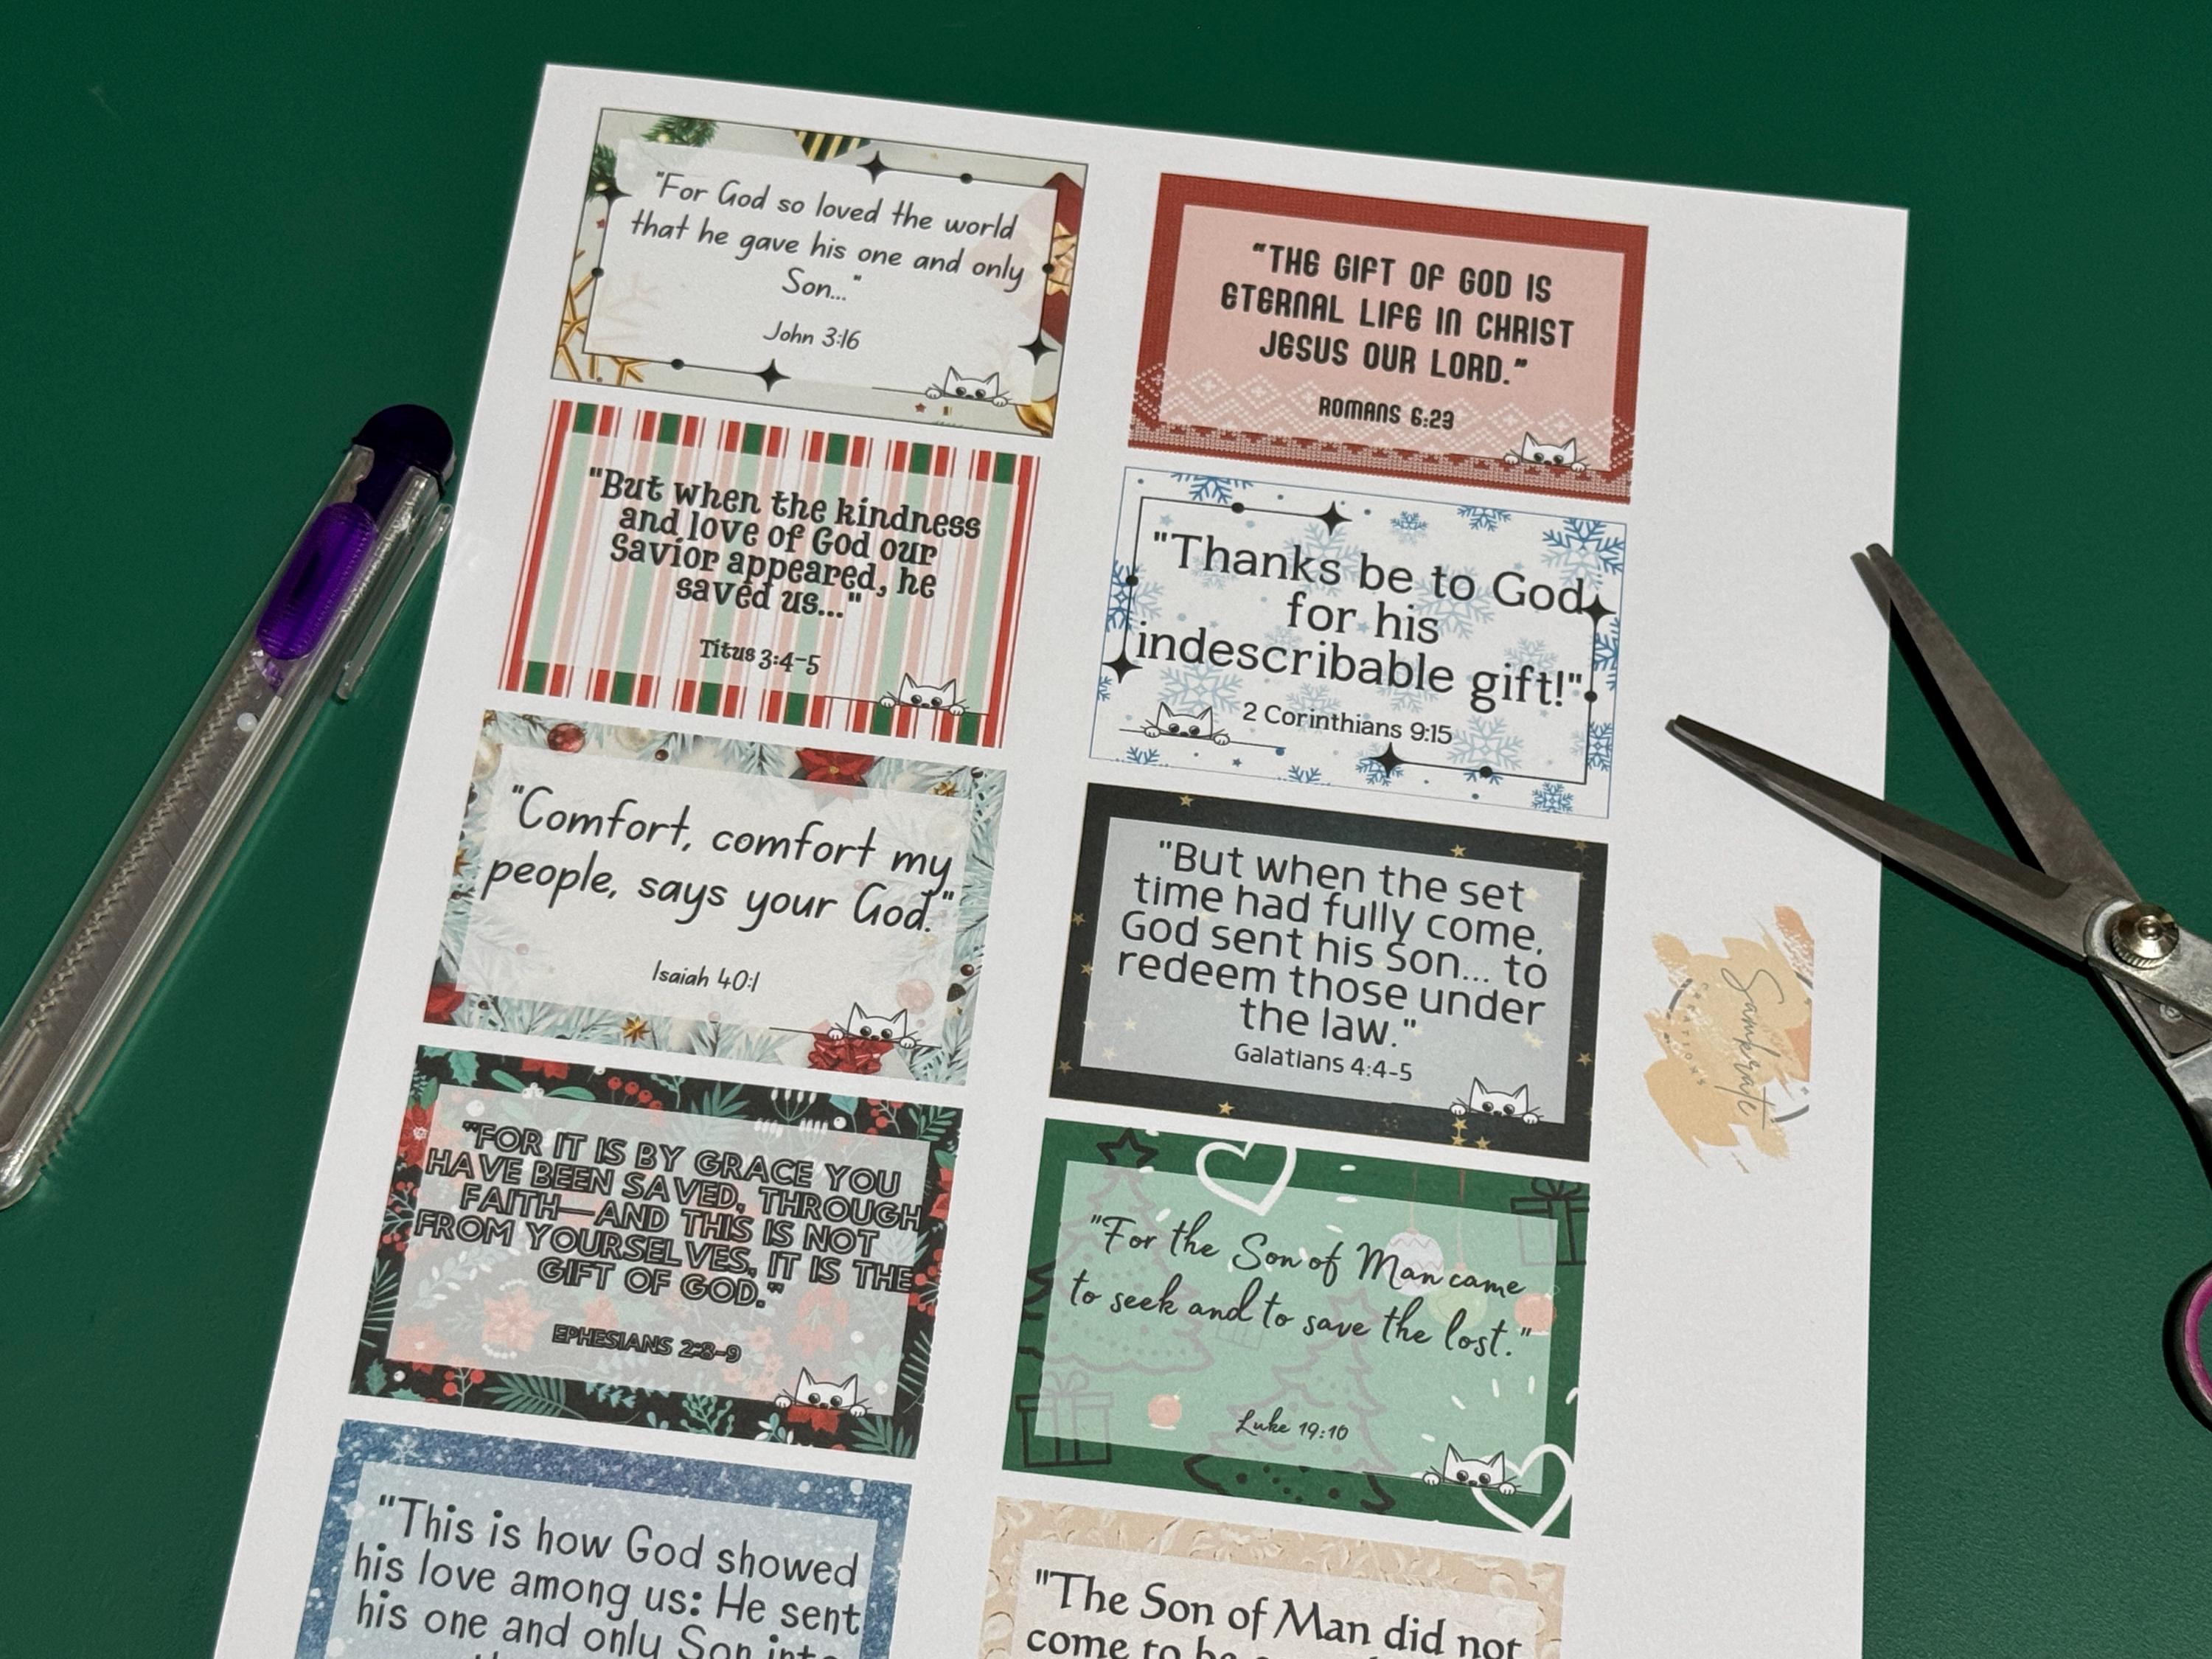 "For God so loved the world
that he gave his one and only
Son..."
John 3:16
"THE GIFT OF GOD IS
ETERNAL LIFE IN CHRIST
JESUS OUR LORD."
ROMANS 6:23
"But when the kindness
and love of God our
Savior appeared, he
saved us..."
Titus 3:4-5
"Thanks be to God
for his
indescribable gift!"
2 Corinthians 9:15
"Comfort, comfort my
people, says your God."
Isaiah 40:1
"But when the set
time had fully come,
God sent his Son... to
redeem those under
the law."
Galatians 4:4-5
"FOR IT IS BY GRACE YOU
HAVE BEEN SAVED, THROUGH
FAITH—AND THIS IS NOT
FROM YOURSELVES, IT IS THE
GIFT OF GOD."
EPHESIANS 2:8-9
"For the Son of Man came
to seek and to save the lost."
Luke 19:10
"This is how God showed
his love among us: He sent
his one and only Son into
"The Son of Man did not
come to be
CREATIONS